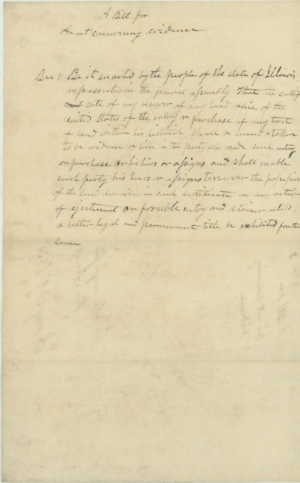 A Bill for
An act concerning evidence
Sec 1 Be it enacted by the people of the state of Illinois
represented in the general assembly That the certifi
cate of any receiver of any land office of the
United States of the entry or purchase of any tract
of land within his district shall be deemed & taken
to be evidence of title in the party who made such entry
or purchase or his heirs or assigns and shall enable
such party his heirs or assigns to recover the possession
of the land described in such certificate in any action
of ejectment or forcible entry and detainer unless
a better legal and paramount title be exhibited for the
same